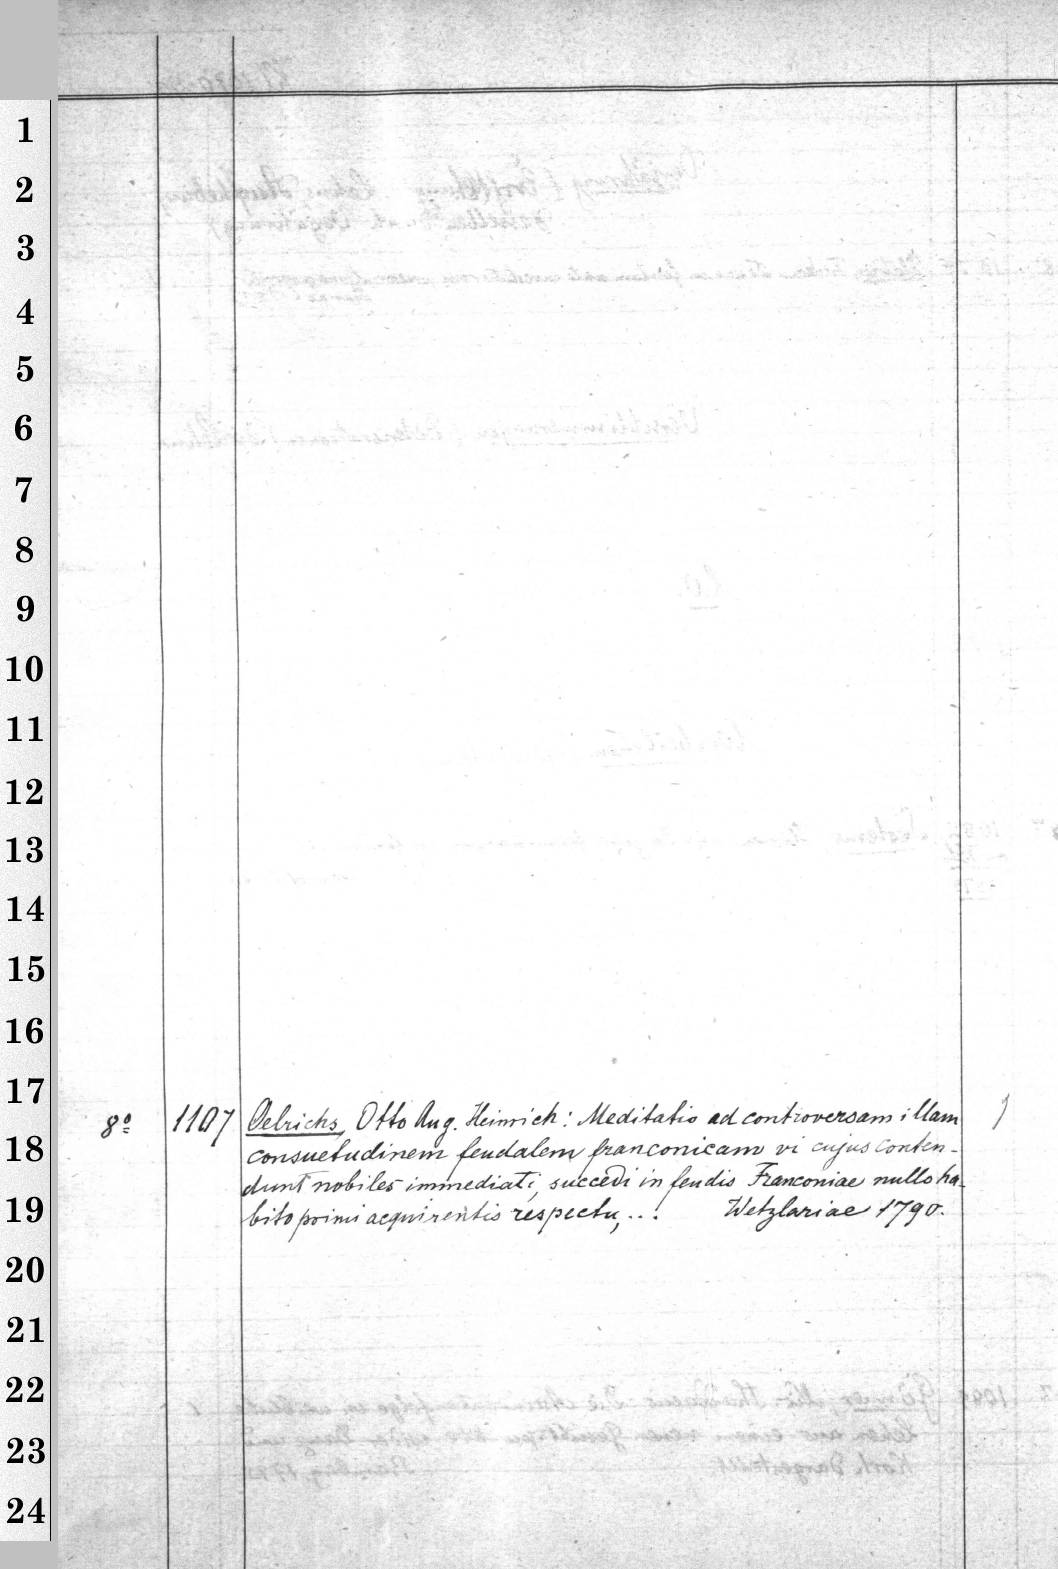 1
2
3
4
5
6
7
8
9
10
11
12
13
14
15
16
17
18
19
20
21
22
23
24
8º 1107 Oelrichs, Otto Aug. Heinrich: Meditatio ad controversam illam 1
consuetudinem feudalem franconicam vi cujus conten-
dunt nobiles immediati, succedi in feudis Franconiae nullo ha-
bito primi acquirentis respectu, ... Wetzlariae 1790.